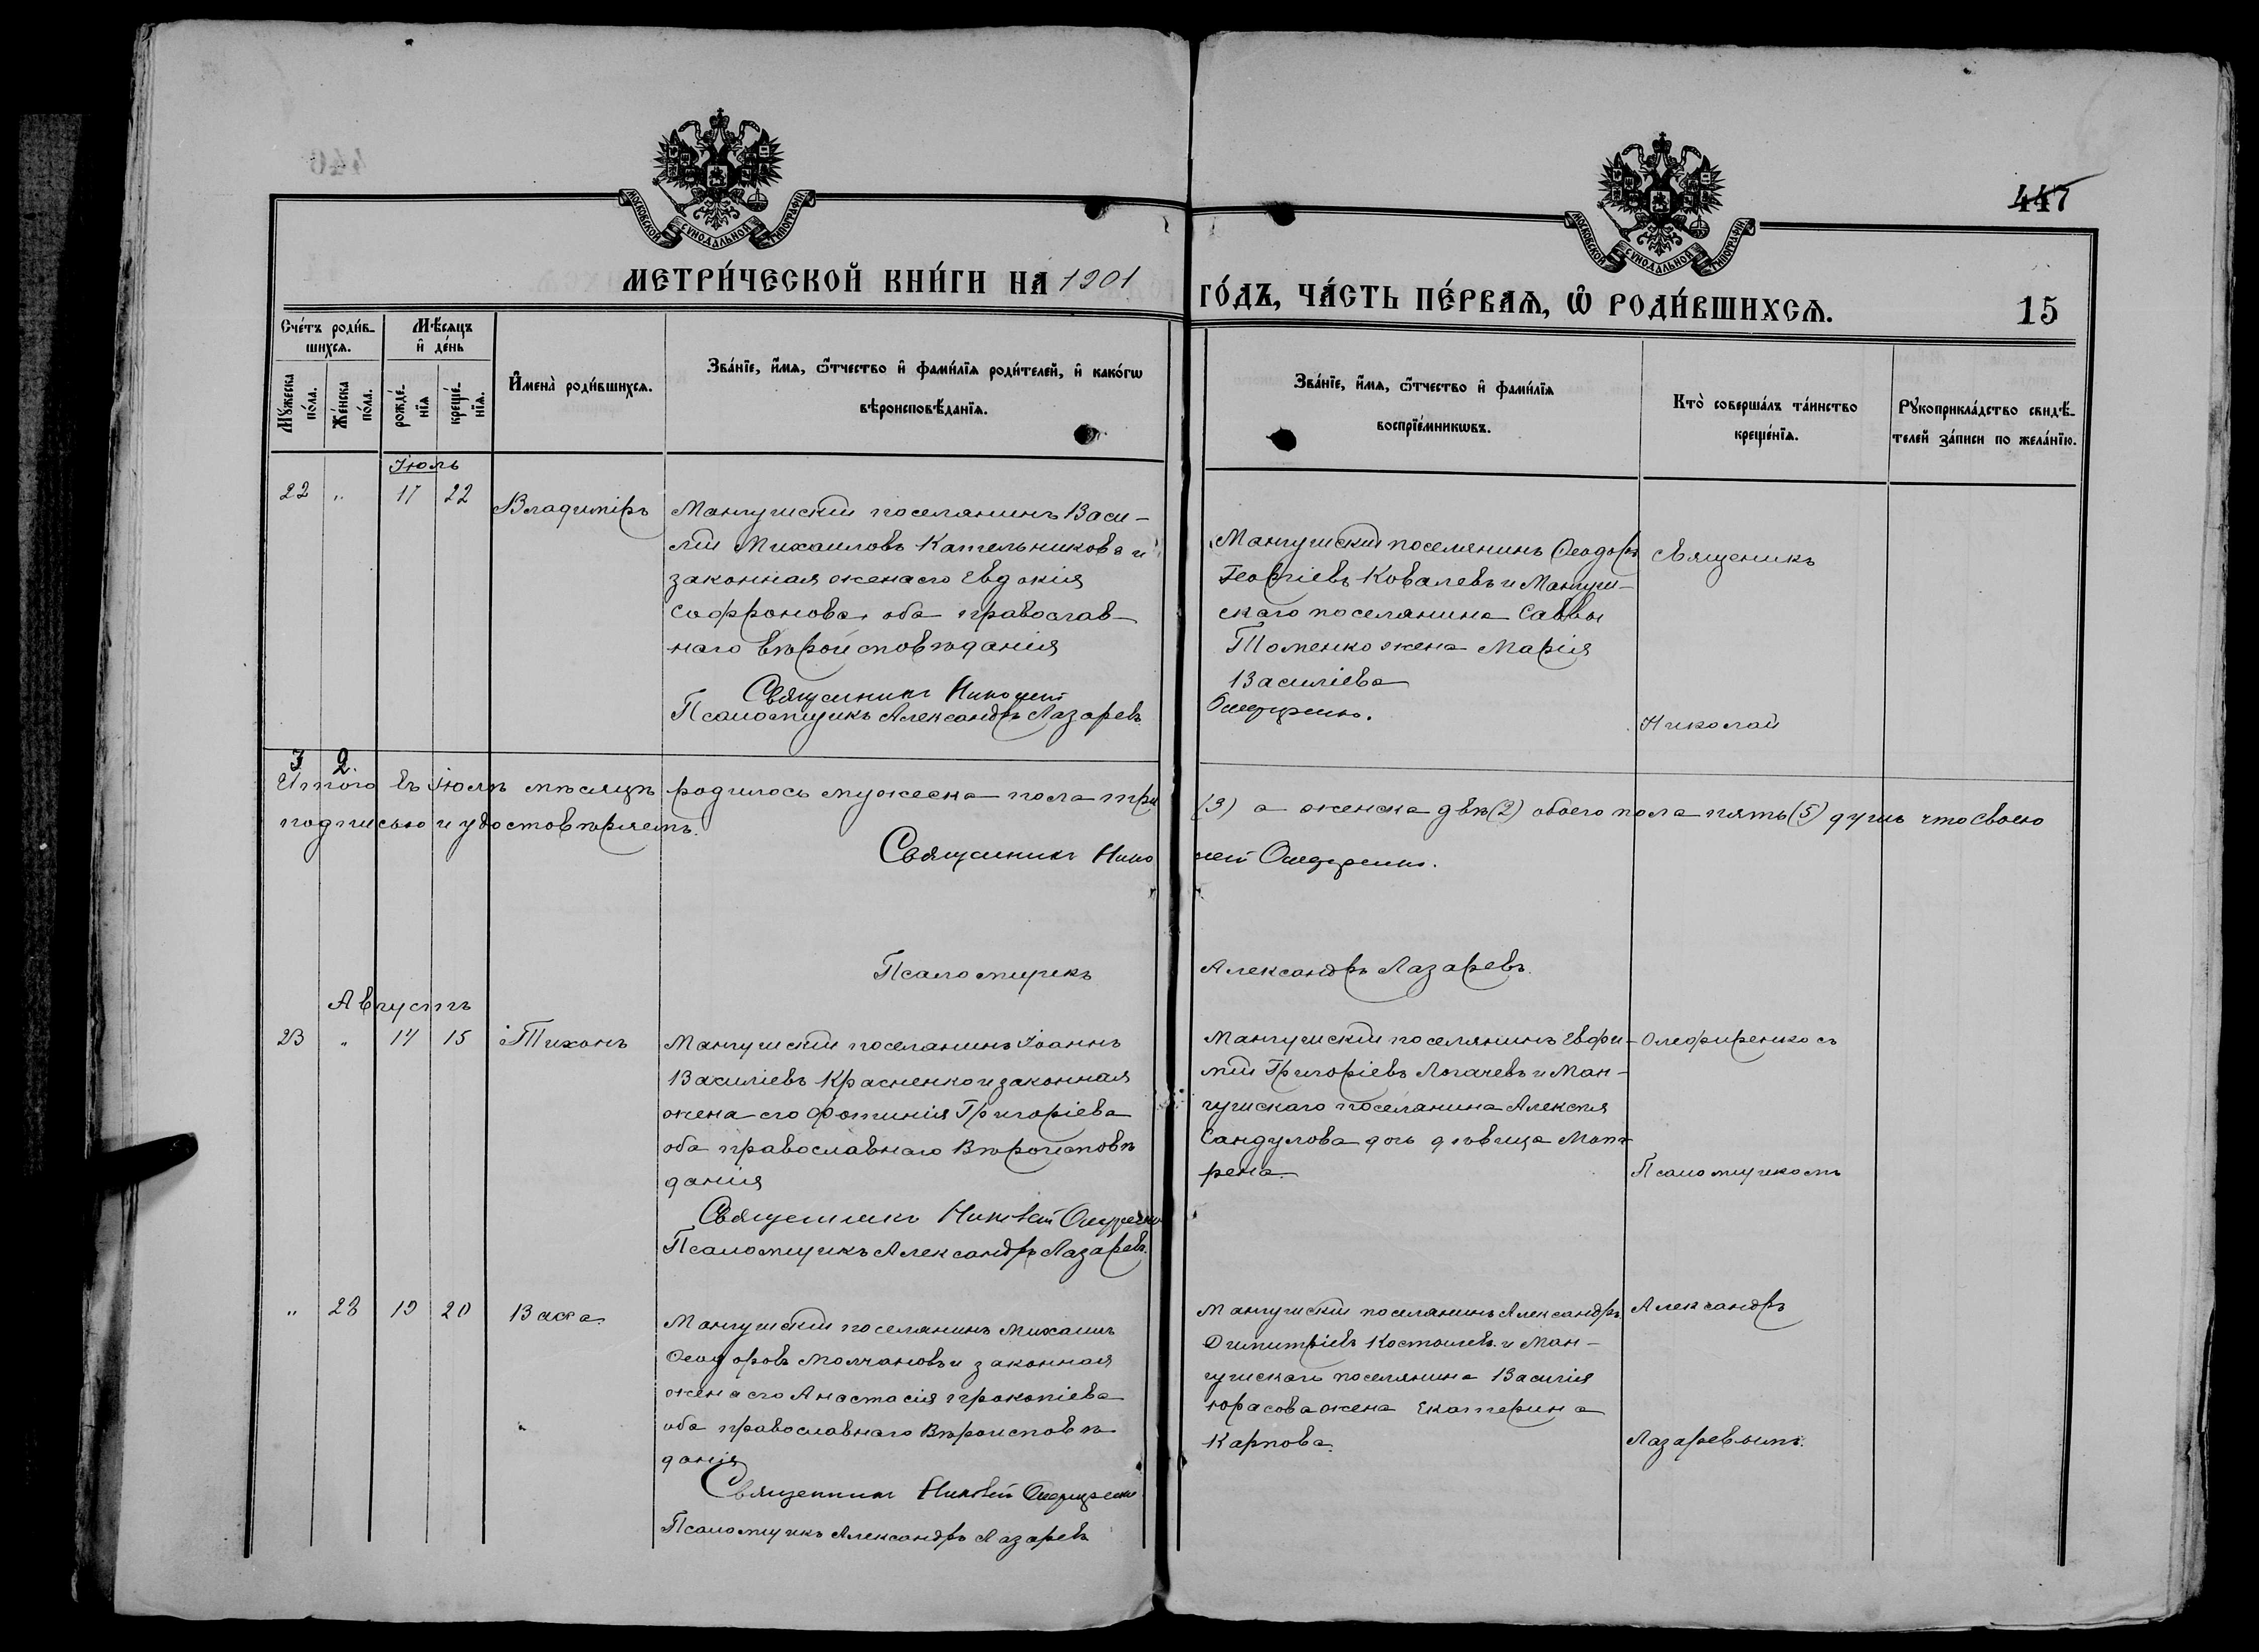 447
15
МОСКОВСКОЙ СѴНОДАЛЬНОЙ ТИПОГРАФІИ
МОСКОВСКОЙ СѴНОДАЛЬНОЙ ТИПОГРАФІИ
МЕТРИ́ЧЕСКОЙ КНИ́ГИ НА 1901 ГО́ДЪ, ЧА́СТЬ ПЕ́РВАѦ, Ѽ РОДИ́ВШИХСѦ.
Сче́тъ роди́в-
шихсѧ.
Мѣ́сѧцъ
и҆ де́нь
Мꙋжеска
по́ла.
Же́нска
по́ла.
рожде́-
нїѧ
креще́-
нїѧ.
И҆мена̀ роди́вшихсѧ.
Зва́нїе, и҆́мѧ, ѻ҆́тчество и҆ фами́лїѧ роди́телей, и҆ како́гѡ
вѣроисповѣ́данїѧ.
Зва́нїе, и҆́мѧ, ѻ҆́тчество и҆ фами́лїѧ
воспрїе́мникѡвъ.
Кто̀ соверша́лъ та́инство
креще́нїѧ.
Рꙋкоприкла́дство свидѣ́-
телей за́писи по жела́нїю.
Іюль
22 " 17 22 Владиміръ
Мангушскій поселянинъ Васи-
лій Михаиловъ Кательниковъ и
законная жена его Евдокія
Софронова, оба православ-
наго вѣроисповѣданія
Священникъ Николай
Псаломщикъ Александръ Лазаревъ.
Мангушскій поселянинъ Ѳеодоръ
Георгіевъ Ковалевъ и Мангуш-
скаго поселянина Саввы
Томенко жена Марія
Василіева
Священикъ
Николай
3 2
Итого въ іюлѣ мѣсяцѣ родилось мужеска пола три (3) а женска двѣ (2) обоего пола пять (5) душъ что своею
подписью и удостовѣряемъ.
Священникъ Николай
Псаломщикъ Александръ Лазаревъ.
Августъ
23 " 14 15 Тихонъ
Мангушскій поселянинъ Іоаннъ
Василіевъ Красненко и законная
жена его Фотинія Григоріева
оба православнаго Вѣроисповѣ
данія
Священникъ Николай
Псаломщикъ Александръ Лазаревъ.
Мангушскій поселянинъ Евфи-
мій Григоріевъ Логачевъ и Ман-
гушскаго поселянина Алексѣя
Сандулова дочь дѣвица Мат-
рена.
Олефиренко съ
Псаломщикомъ
" 23 19 20 Васса.
Мангушскій поселянинъ Михаилъ
Ѳеодоровъ Молчановъ и законная
жена его Анастасія Прокопіева
оба православнаго Вѣроисповѣ
данія
Священникъ Николай
Псаломщикъ Александръ Лазаревъ
Мангушскій поселянинъ Александръ
Димитріевъ Костылевъ и Ман-
гушскаго поселянина Василія
Юрасова жена Екатерина
Карпова.
Александръ
Лазаревымъ.